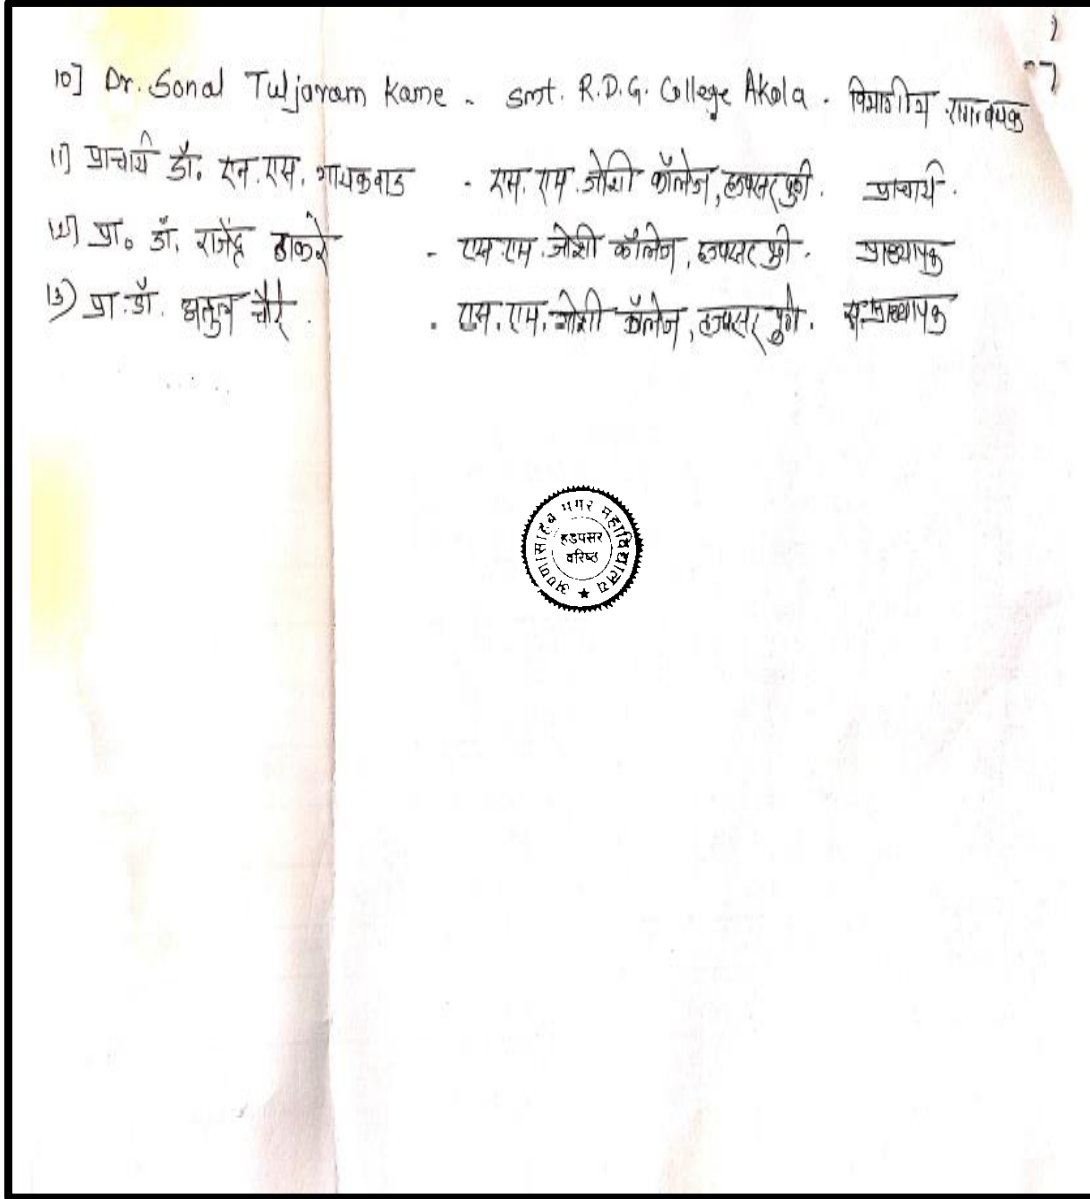 10] Dr. Sonal Tuljaram Kame - Smt. R.D.G. College Akola. विभागीय समन्वयक
11] प्राचार्य डॉ. एन.एस. गायकवाड - एस. एम. जोशी कॉलेज, हडपसर पुणे. प्राचार्य.
12] प्रा. डॉ. राजेंद्र ठाकरे - एस.एम. जोशी कॉलेज, हडपसर पुणे. प्राध्यापक
13) प्रा. डॉ. अतुल चौरे. - एस. एम. जोशी कॉलेज, हडपसर पुणे. स. प्राध्यापक
अण्णासाहेब मगर महाविद्यालय
हडपसर
वरिष्ठ